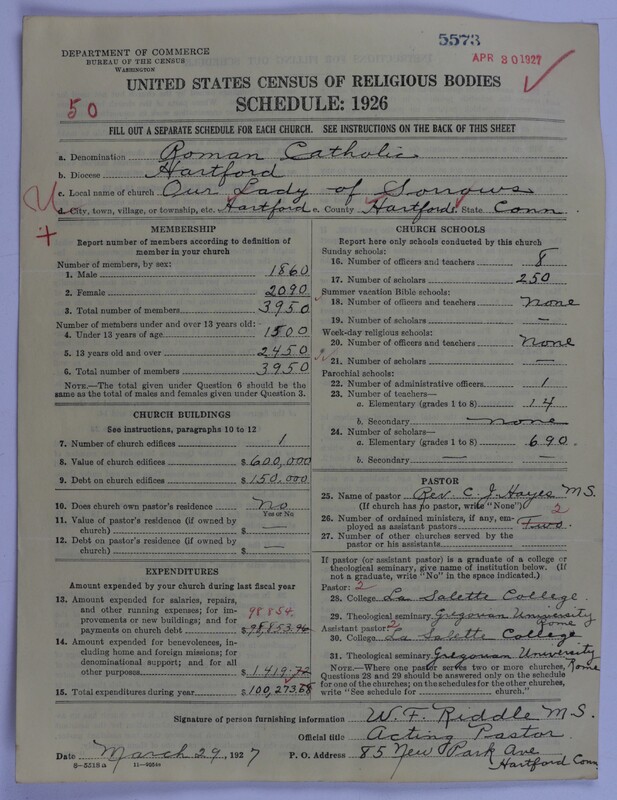 5573
APR 30 1927
DEPARTMENT OF COMMERCE
BUREAU OF THE CENSUS
WASHINGTON
UNITED STATES CENSUS OF RELIGIOUS BODIES
SCHEDULE: 1926
50
FILL OUT A SEPARATE SCHEDULE FOR EACH CHURCH. SEE INSTRUCTIONS ON THE BACK OF THIS SHEET
a. Denomination Roman Catholic
b. Diocese Hartford
c. Local name of church Our Lady of Sorrows
d. City, town, village, or township, etc. Hartford e. County Hartford f. State Conn.
MEMBERSHIP
Report number of members according to definition of
member in your church
Number of members, by sex:
1. Male 1860
2. Female 2090
3. Total number of members 3950
Number of members under and over 13 years old:
4. Under 13 years of age 1500
5. 13 years old and over 2450
6. Total number of members 3950
NOTE.—The total given under Question 6 should be the
same as the total of males and females given under Question 3.
CHURCH BUILDINGS
See instructions, paragraphs 10 to 12
7. Number of church edifices 1
8. Value of church edifices $600,000
9. Debt on church edifices $150.000
10. Does church own pastor's residence No
Yes or No
11. Value of pastor's residence (if owned by
church) $ —
12. Debt on pastor's residence (if owned by
church) $ —
EXPENDITURES
Amount expended by your church during last fiscal year
13. Amount expended for salaries, repairs,
and other running expenses; for im-
provements or new buildings; and for 98854.
payments on church debt $98,853.96
14. Amount expended for benevolences, in-
cluding home and foreign missions; for
denominational support; and for all
other purposes $1419.72
15. Total expenditures during year $100,273.68
CHURCH SCHOOLS
Report here only schools conducted by this church
Sunday schools:
16. Number of officers and teachers 8
17. Number of scholars 250
Summer vacation Bible schools:
18. Number of officers and teachers none
19. Number of scholars —
Week-day religious schools:
20. Number of officers and teachers None
21. Number of scholars —
Parochial schools:
22. Number of administrative officers 1
23. Number of teachers—
a. Elementary (grades 1 to 8) 14
b. Secondary none
24. Number of scholars—
a. Elementary (grades 1 to 8) 690.
b. Secondary — —
PASTOR
25. Name of pastor Rev. C. J. Hayes M.S.
(If church has no pastor, write "None") 2
26. Number of ordained ministers, if any, em-
ployed as assistant pastors Two.
27. Number of other churches served by the
pastor or his assistants
If pastor (or assistant pastor) is a graduate of a college or
theological seminary, give name of institution below. (If
not a graduate, write "No" in the space indicated.)
Pastor: 2
28. College La Salette College.
29. Theological seminary Gregorian University
Rome
Assistant pastor: 2
30. College La Salette College
31. Theological seminary Gregorian University
Rome
NOTE.—Where one pastor serves two or more churches,
Questions 28 and 29 should be answered only on the schedule
for one of the churches; on the schedules for the other churches,
write "See schedule for church."
Signature of person furnishing information W. F. Riddle M.S.
Official title Acting Pastor.
Date March 29, 1927 P. O. Address 85 New Park Ave
Hartford Conn
8—5518a 11—9254